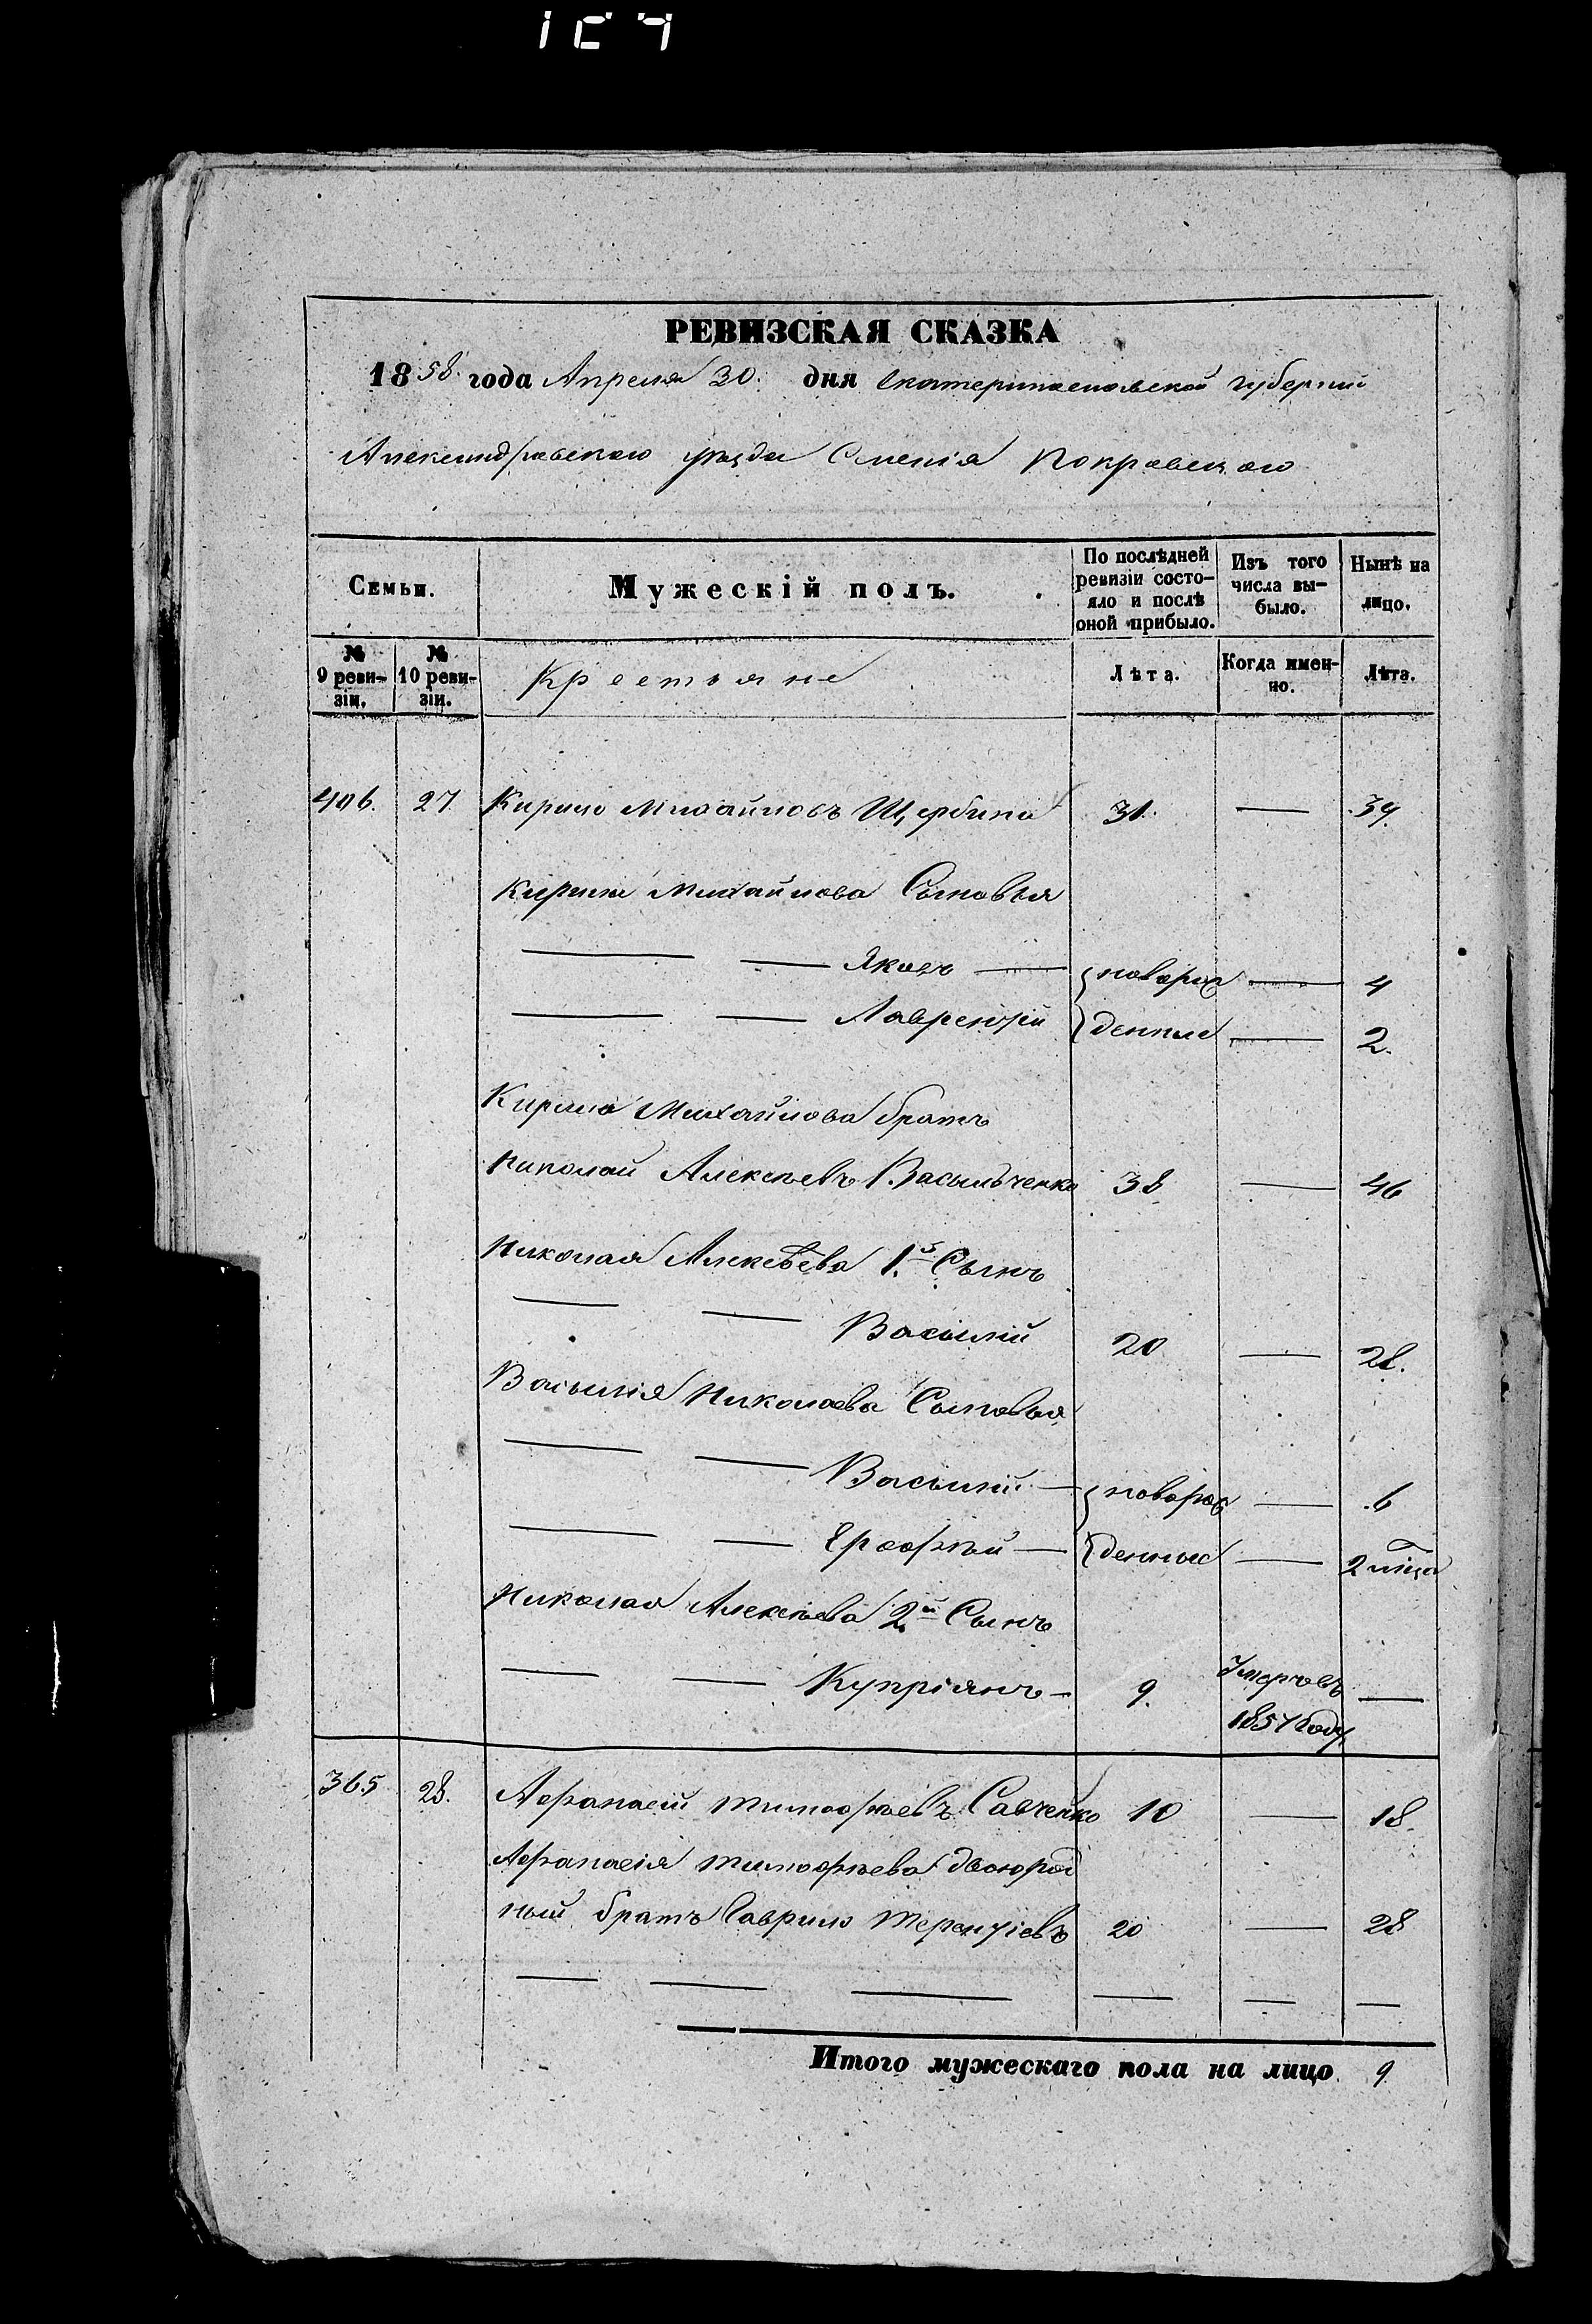 РЕВИЗСКАЯ СКАЗКА
1858 года Апреля 30. дня Екатеринославской губернии
Александровского уезда Селенія Покровского
Семьи.
Мужескій полъ.
По послѣдней ревизіи состо-яло и послѣ оной прибыло.
Изъ того числа вы-было.
Нынѣ на лицо.
№ 9 реви-зіи.
№ 10 реви-зіи.
Крестьяне
Лѣта.
Когда имен-но.
Лѣта.
406. 27. Кирило Михайловъ Щербина 31. — 39.
Кирила Михайлова Сыновья
— — Яковъ — новорож — 4
— — Лаврентій денные — 2.
Кирила Михайлова братъ
Николай Алексѣевъ Васильченко 38 — 46
Николая Алексѣева 1й Сынъ
— — Василій 20 — 28.
Василія Николаева Сыновья
— — Василій — новорож — 6
— — Ерофѣй — денные — 2 мѣсца
Николая Алексѣева 2й Сынъ
— — Купріянъ — 9. Умеръ въ —
1857 Году
365 28. Афанасій Тимофѣевъ Савченко 10 — 18.
Афанасія Тимофѣева двоюрод
ный братъ Гаврило Терентіевъ 20 — 28
— — — — — —
Итого мужескаго пола на лицо 9.